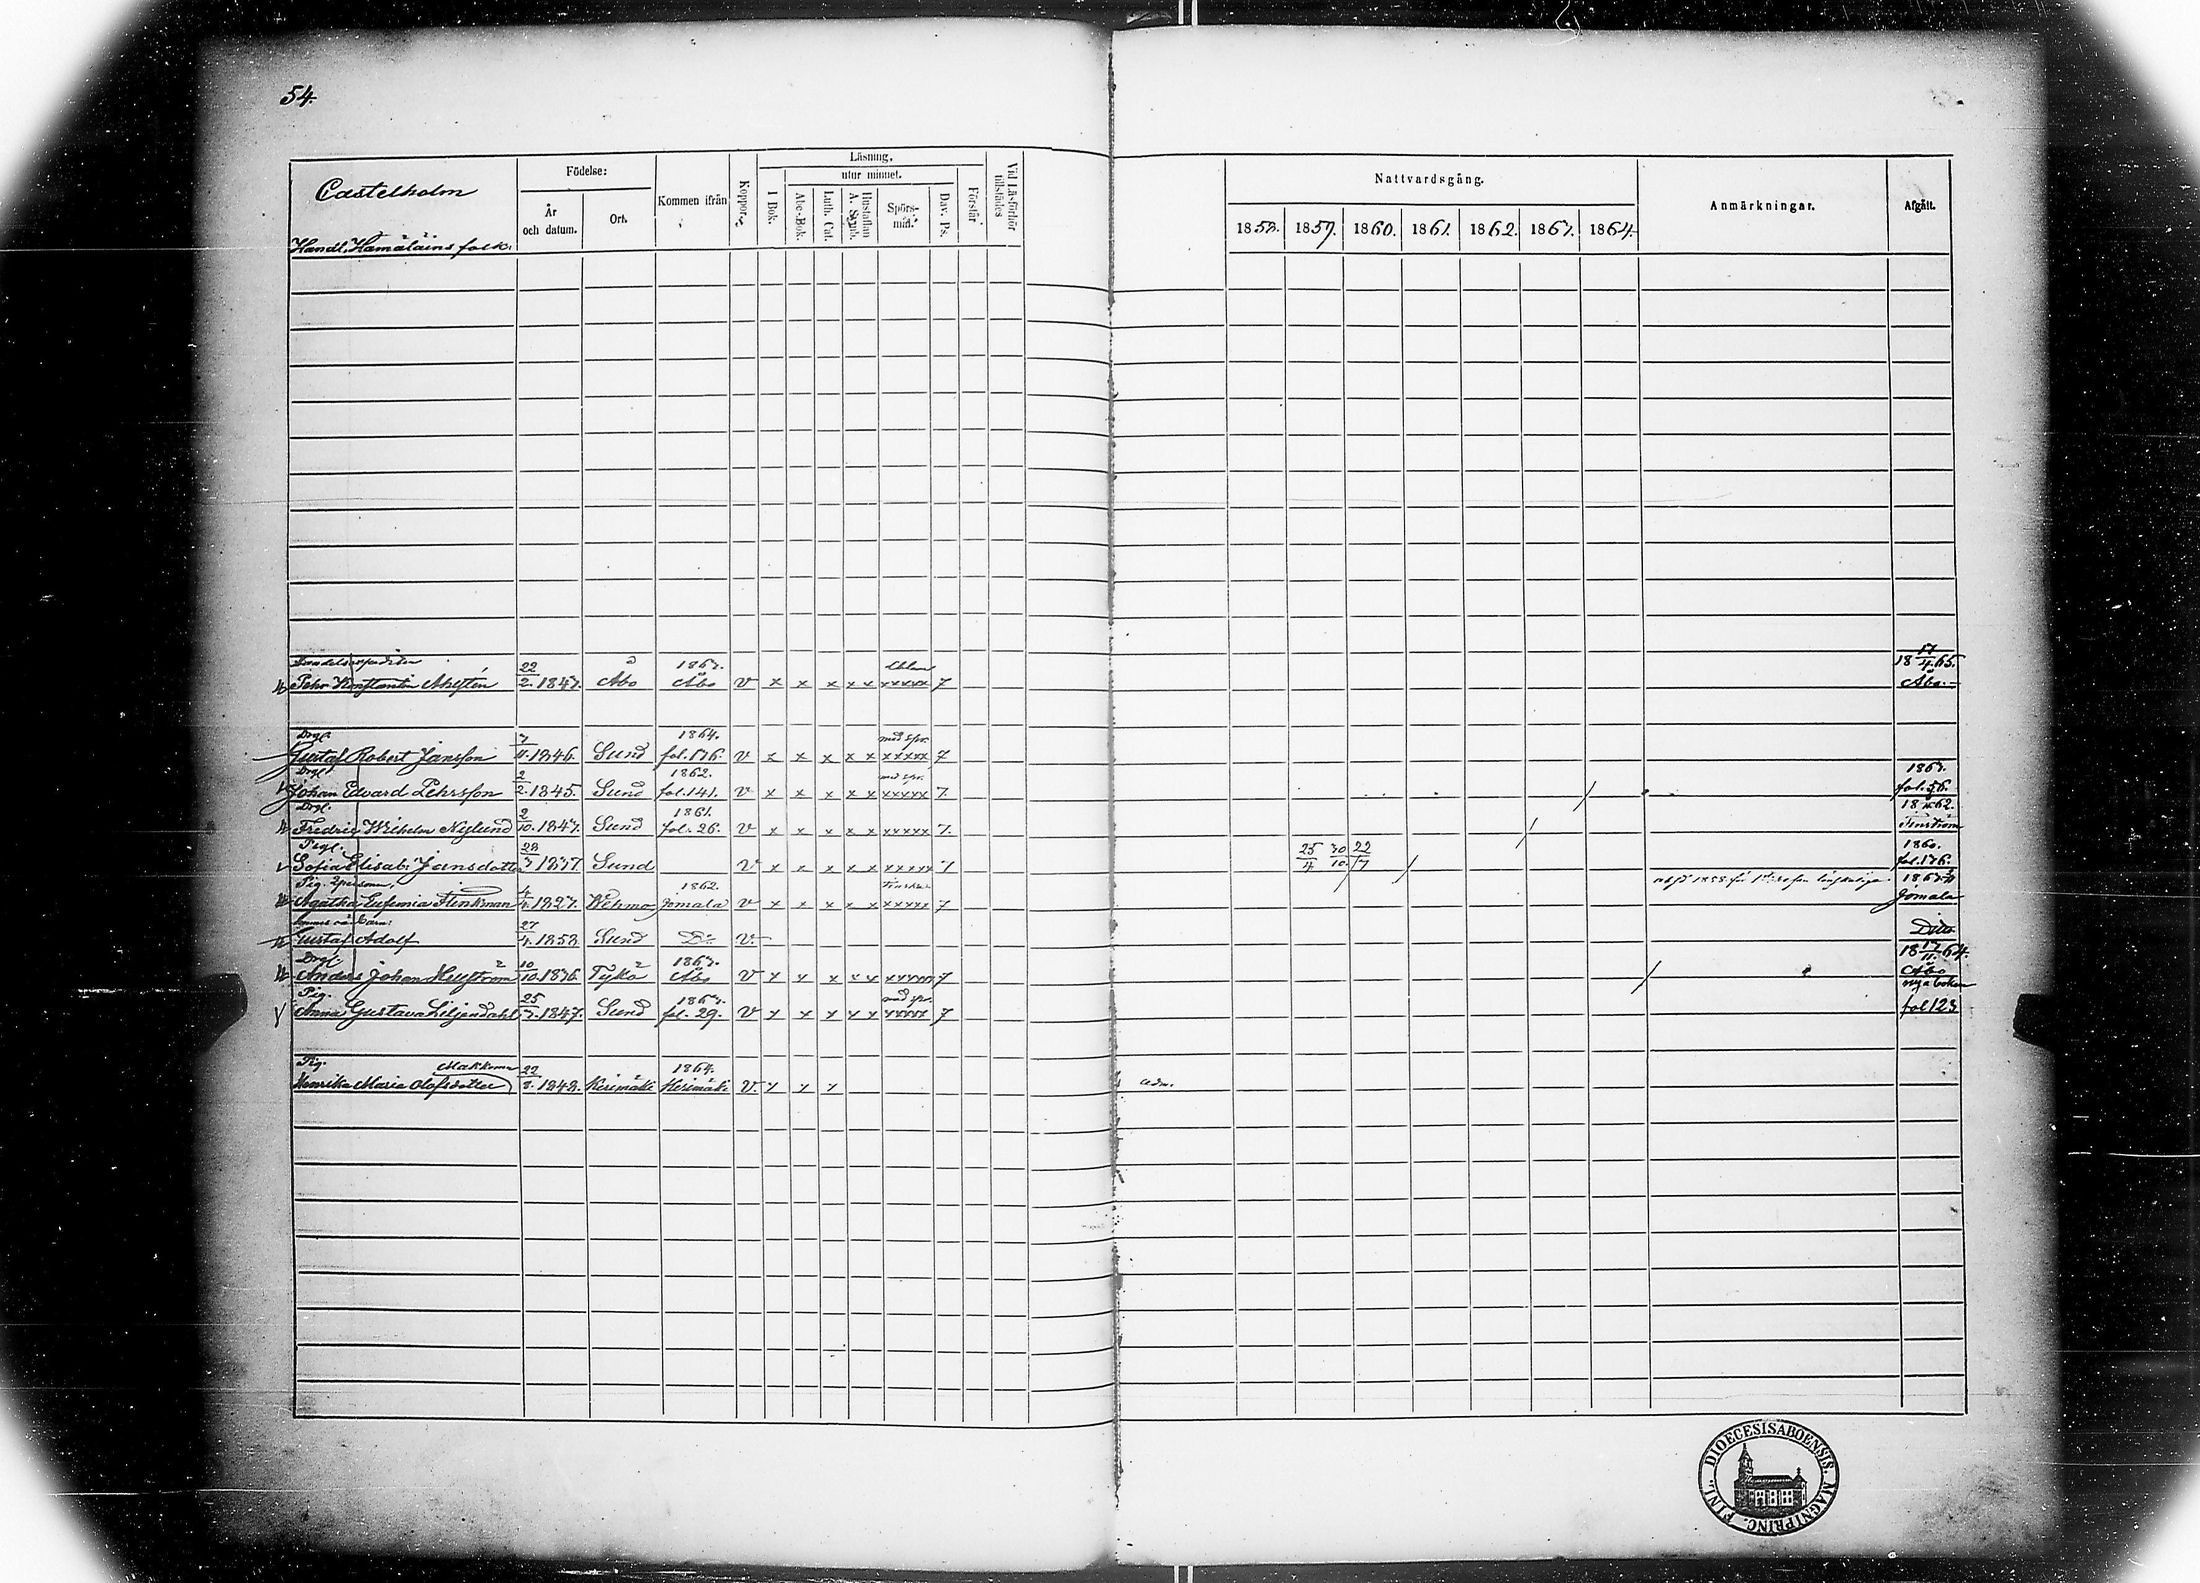 54.
Castelholm
Handl. Hämäläins folk.
Födelse:
År och datum.
Ort.
Kommen ifrån
Koppor.
Läsning,
utur minnet.
I Bok.
Abc-Bok.
Luth. Cat.
Hustaflan A. Symb.
Spörs-mål.
Dav. Ps.
Förstår
Vid Läsförhör tillstädes
Nattvardsgång.
1858. 1859. 1860. 1861. 1862. 1863. 1864.
Anmärkningar.
Afgått.
22 1863. 18 17/4 65.
Pehr Konstantin 2. 1843. Åbo Åbo v x x x x x xxxxx 7 Åbo.
Drgl. 7 1864. med spr.
Gustaf Robert Jansson 11. 1846. Sund fol. 176. v x x x x x xxxxx 7
Drgl. 2 1862. med spr. 1863.
Johan Edvard Pehrsson 2. 1845. Sund fol. 141. v x x x x x xxxxx 7. fol. 56.
Drgl. 2 1861. 18 62.
Fredric Wilhelm Nylund 10. 1843. Sund fol. 26. v x x x x x xxxxx 7. Finström
Pigl. 28 25/4 30/10 22/7 1860.
Sofia Elisab. Jansdotter 3. 1837 Sund v x x x x x xxxxx 7 fol. 176.
Pig. 4 1862. 1863
Agatha Eufemia Flinkman 4. 1827. Wehmo Jomala v x x x x x xxxxx 7 Jomala
barn: 27
Gustaf Adolf 4. 1853. Sund D:o v. Ditto
Drgl. 10 1863. 18 17/11 64.
Anders Johan 10. 1836. Tykö Åbo v x x x x x xxxxx 7 Åbo
Pig. 25 1863. med spr. nya boken
Anna Gustava Liljendahl 3. 1847. Sund fol. 29. v x x x x x xxxxx 7 fol 123
Pig. Makkonen 22 1864.
Henrika Maria Olofsdotter 8. 1843. Kerimäki Kerimäki v. x x x adm.
DIOECESIS ABOENSIS. MAGNI PRINC. FINL.